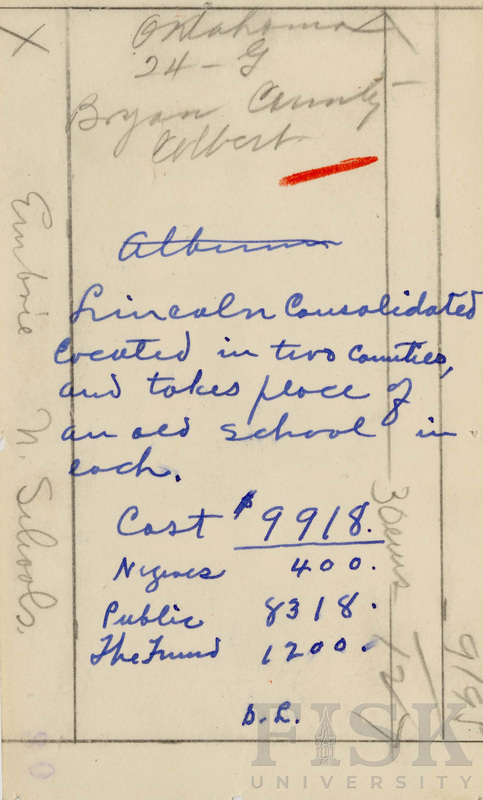 Oklahoma
24-G
Bryan County
Colbert
Album
Lincoln Consolidated
located in two Counties,
and takes place of
an old school in
each.
Cost $9918.
Negroes 400.
Public 8318.
The Fund 1200.
D.L.
Embrie N. Schools.
FISK
UNIVERSITY